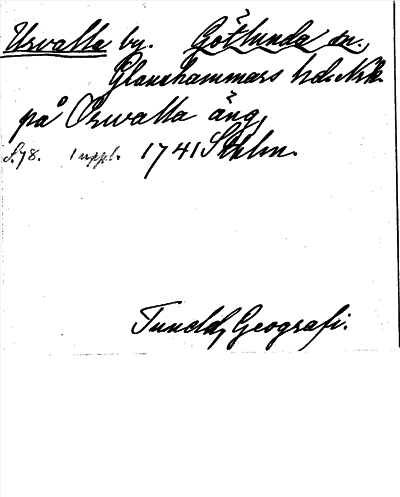 Urvalla by. Götlunda sn.
Glanshammars hd. Nrk.
på Orwalla äng,
S. 78. 1 uppl. 1741 Sthlm.
Tuneld, Geografi.